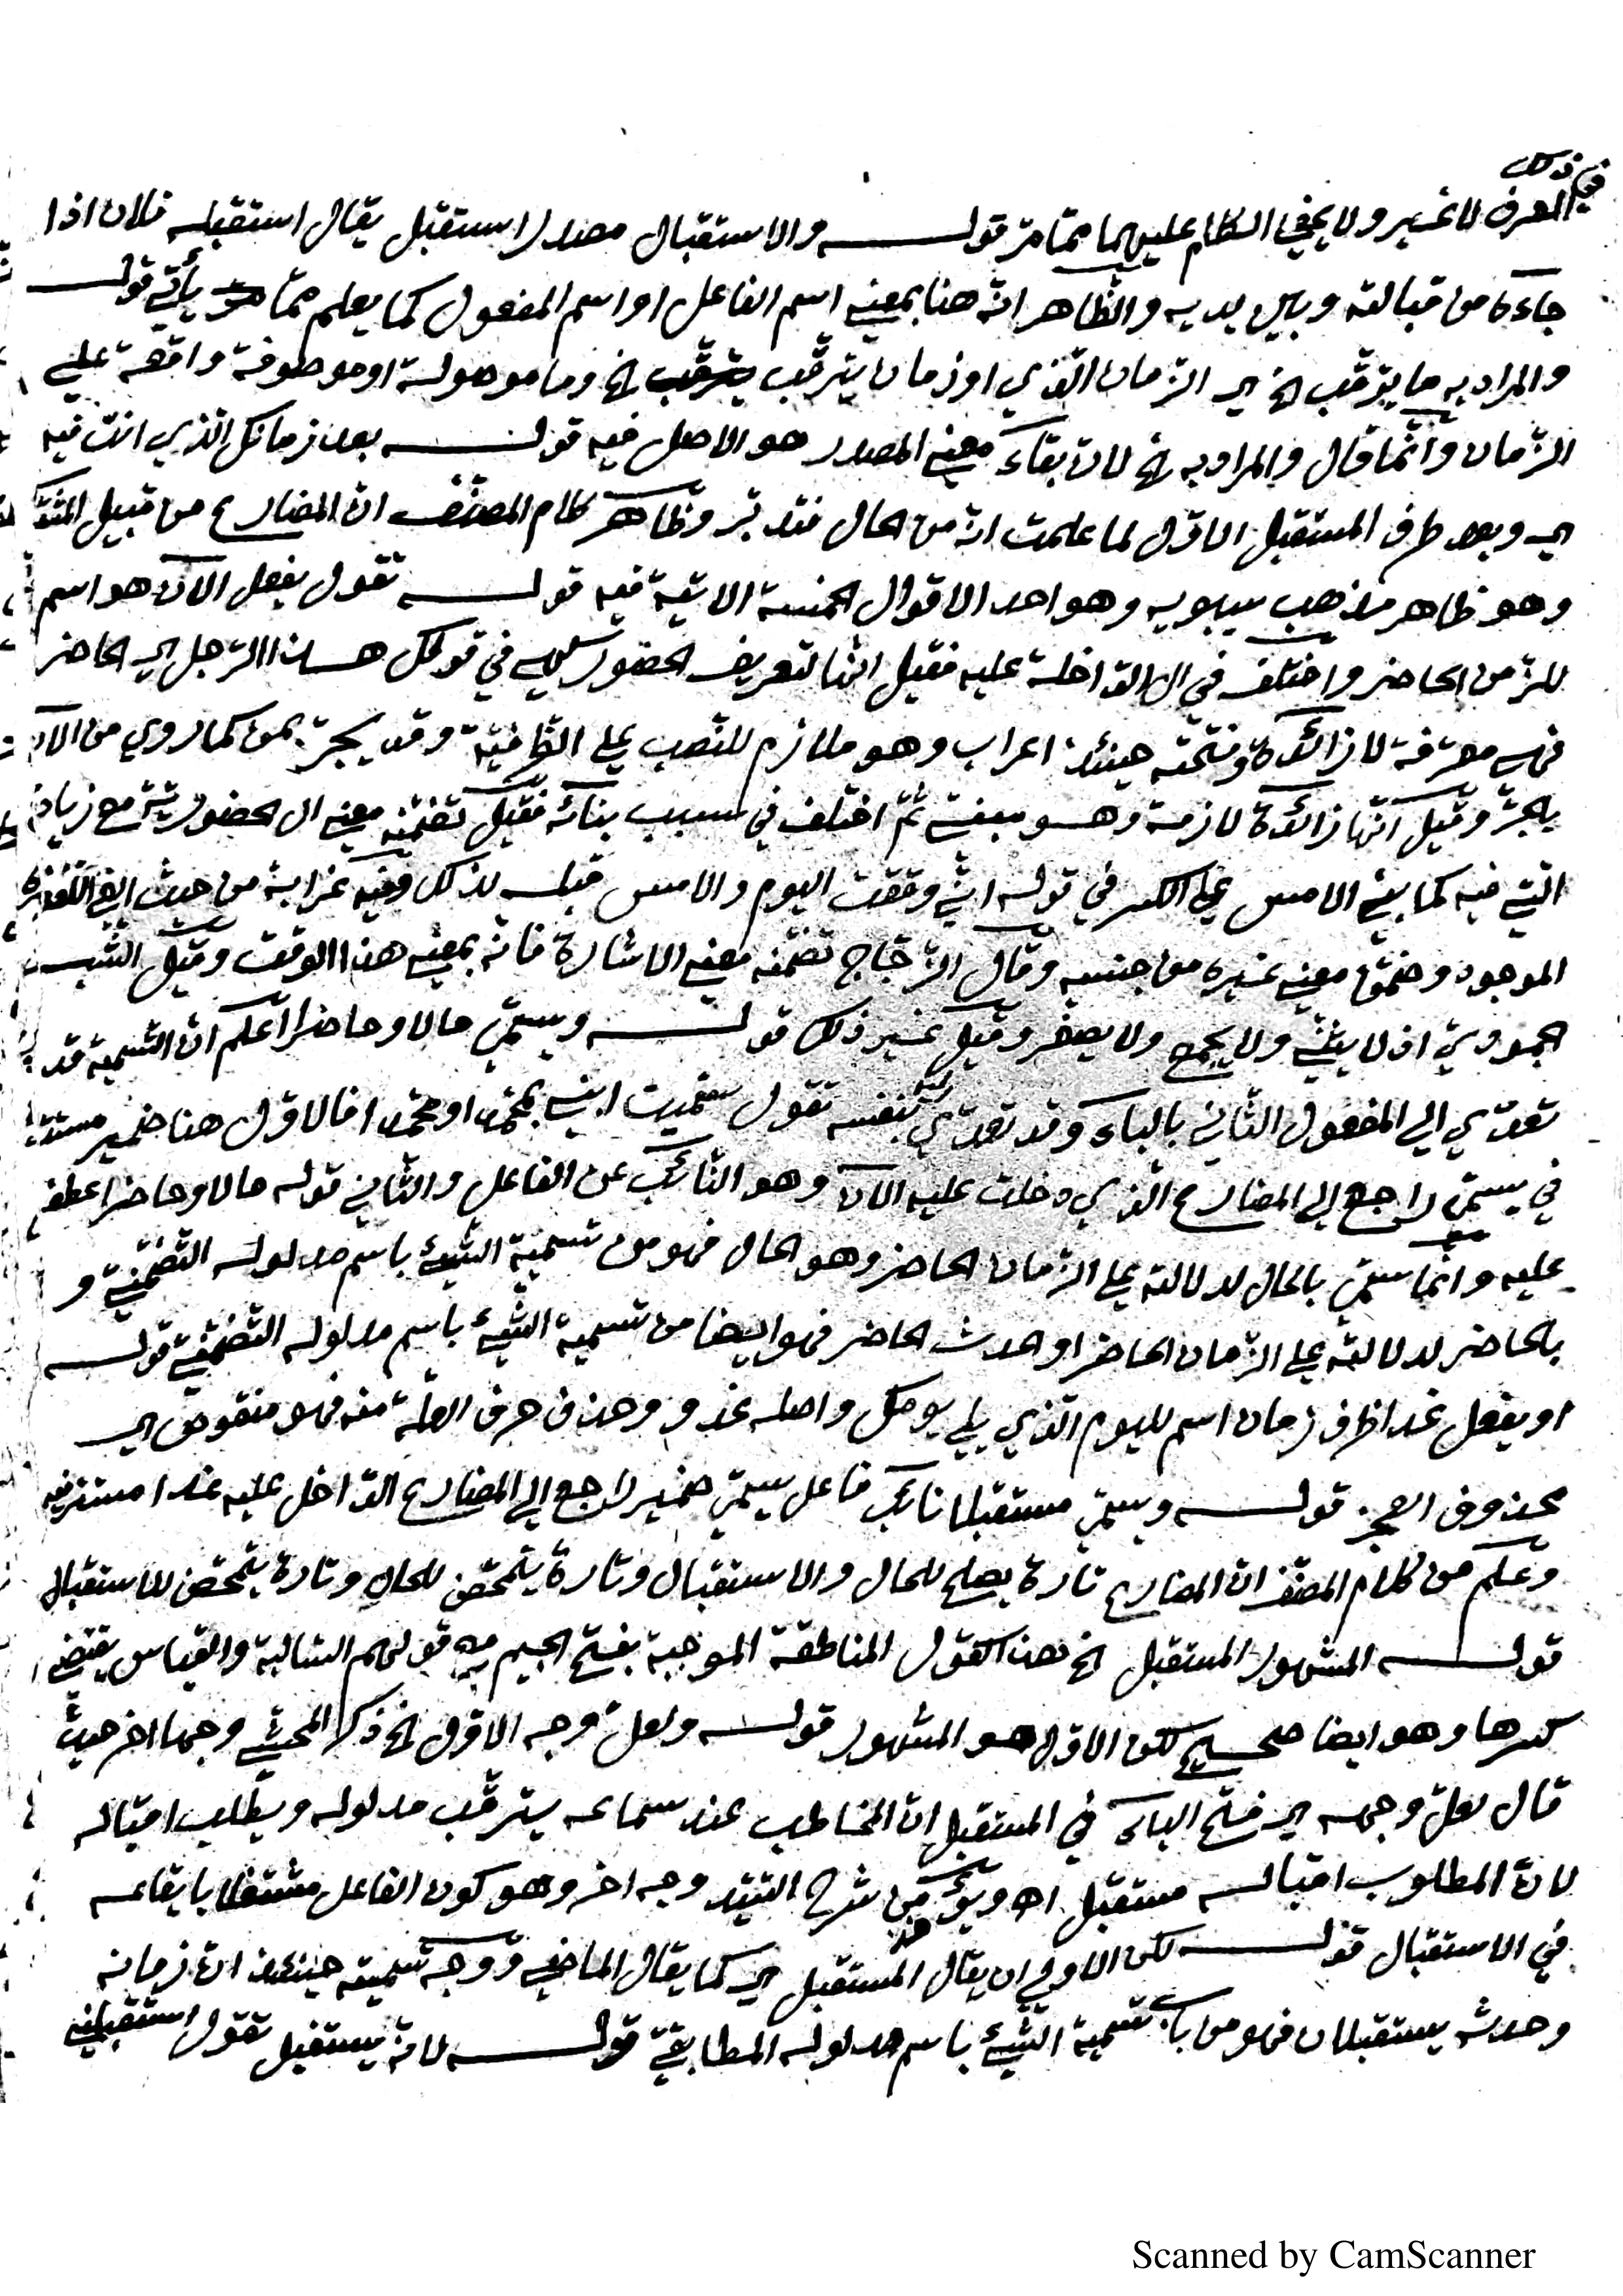 في ذلك
العرف لا غير ولا يخفى الكلام عليهما مما مر قوله والاستقبال مصدر استقبل يقال استقبله فلان اذا
جاءه من قبالته وبين يديه والظاهر انه هنا بمعنى اسم الفاعل او اسم المفعول كما يعلم مما يأتي قوله
والمراد به ما يترقب الخ اي الزمان الذي او زمان يترقب الخ وما موصولة او موصوفة واقعة على
الزمان وانما قال والمراد به الخ لان بقاء معنى المصدر هو الاصل فيه قوله بعد زمانك الذي انت فيه
اي وبعد طرف المستقبل الاول لما علمت انه من الحال فتدبر وظاهر كلام المصنف ان المضارع من قبيل المشترك
وهو ظاهر مذهب سيبويه وهو احد الاقوال الخمسة الاتية فيه قوله تقول يفعل الآن هو اسم
للزمن الحاضر واختلف في ال الداخلة عليه فقيل انها لتعريف الحضور كهي في قولك هذا الرجل اي الحاضر
فهي معرفة لا زائدة وفتحته حينئذ اعراب وهو ملازم للنصب على الظرفية وقد يجر بمن كما روي من الآن
بالجر وقيل انها زائدة لازمة وهو مبني ثم اختلف في سبب بنائه فقيل تضمنه معنى ال الحضورية مع زيادة
التي فيه كما بني الامس على الكسر في قوله اني وقفت اليوم والامس قبله لذلك وفيه غرابة من حيث الغي اللفظ
الموجود وضمن معنى غيره من جنسه وقال الزجاج تضمنه معنى الاشارة فانه بمعنى هذا الوقت وقيل الشبه
الجمودي اذ لا يثنى ولا يجمع ولا يصغر وقيل غير ذلك قوله ويسمى حالا وحاضرا اعلم ان التسمية قد
تعدي الى المفعول الثاني بالباء وقد تعدي بنفسه تقول سميت ابني بمحمد او محمدا فالاول هنا ضمير مستتر
في يسمى راجع الى المضارع الذي دخلت عليه الآن وهو النائب عن الفاعل والثاني قوله حالا وحاضرا عطف
عليه وانما سمي بالحال لدلالته على الزمان الحاضر وهو الحال فهو من تسمية الشيء باسم مدلوله التضمني و
بالحاضر لدلالته على الزمان الحاضر او الحدث الحاضر فهو ايضا من تسمية الشيء باسم مدلوله التضمني قوله
او يفعل غدا ظرف زمان اسم لليوم الذي يلي يومك واصله غدو وحذف حرف العلة منه فهو منقوص اي
محذوف العجز قوله ويسمى مستقبلا نائب فاعل يسمى ضمير راجع الى المضارع الداخل عليه غدا مستتر فيه
وعلم من كلام المصنف ان المضارع تارة يصلح للحال والاستقبال وتارة يتمحض للحال وتارة يتمحض للاستقبال
قوله المشهور المستقبل الخ هذا كقول المناطقة الموجبة بفتح الجيم مع قولهم السالبة والقياس يقتضي
كسرها وهو ايضا صحيح لكن الاول هو المشهور قوله ولعل وجه الاول الخ ذكر المحشي وجها اخر حيث
قال لعل وجهه اي فتح الباء في المستقبل ان المخاطب عند سماعه يترقب مدلوله ويطلب اقباله
لان المطلوب اقباله مستقبل اه ويؤخذ من شرح السيد وجه اخر وهو كون الفاعل مشتغلا بايقاعه
في الاستقبال قوله لكن الاولى ان يقال المستقبل اي كما يقال الماضي ووجه تسميته حينئذ ان زمانه
وحدثه يستقبلان فهو من باب تسمية الشيء باسم مدلوله المطابقي قوله لانه يستقبل تقول استقبلني
Scanned by CamScanner